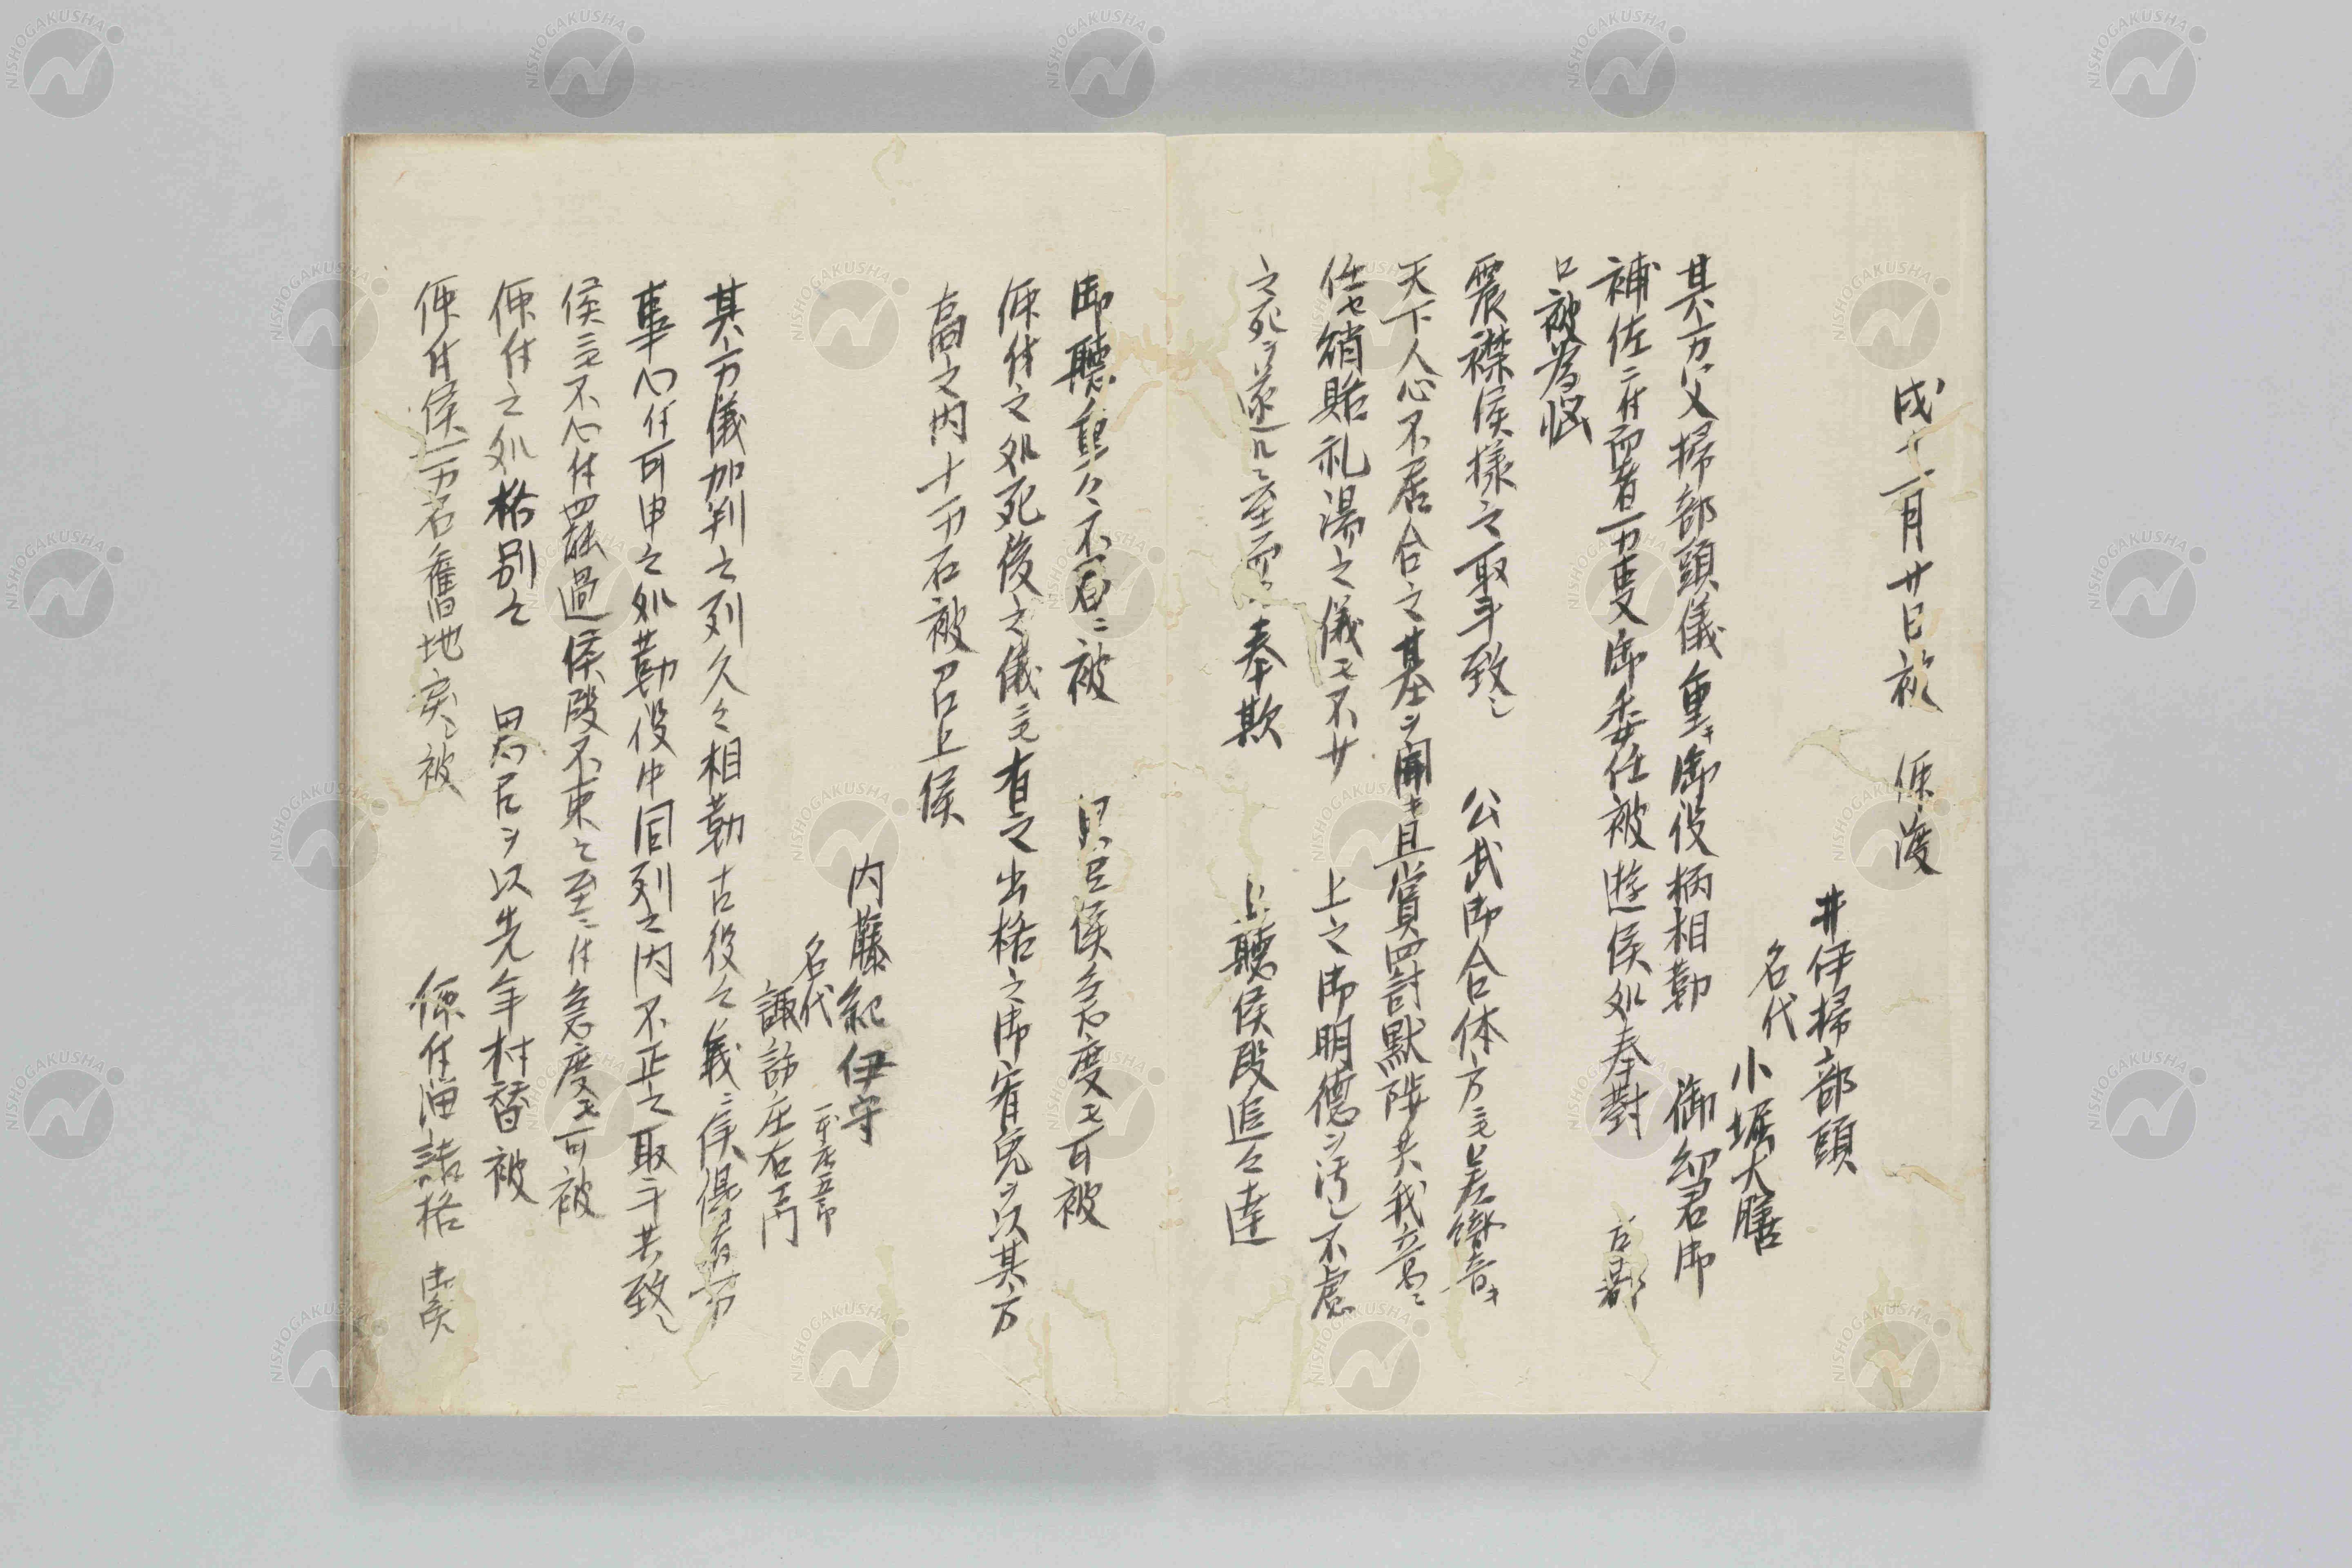 戌十一月廿日被　仰渡
井伊掃部頭
名代
小堀大膳
其方父掃部頭儀重キ御役柄相勤　御幼君御
補佐ニ付而者万事御委任被遊候処奉對　京都
被為悩
震襟候様之取斗致シ　公武御合体方ニ毛差響音キ
天下人心不居合之基ヲ開キ且賞罰黙陟共我意ニ
任セ絹賂礼湯之儀モ不少　上之御明徳ヲ汚シ不慮
之死ヲ遂ルニ至而モ奉欺　上聴候段追々達
御聴重々不届ニ被　思召候急度モ可被
仰付之処死後之儀ニ毛有之出格之御宥免ヲ以其方
高之内十万石被召上候
内藤紀伊守
名代
諏訪庄右エ門
其方儀加判之列久々相勤古役之義ニ候得者万
事心付可申之処勤役中同列之内不正之取斗共致シ
候ニ毛不心付罷過候段不束之至ニ付急度モ可被
仰付之処格別之　思召ヲ以先年村替被
仰付候一万石舊地戻シ被　仰付溜詰格
NISHOGAKUSHA